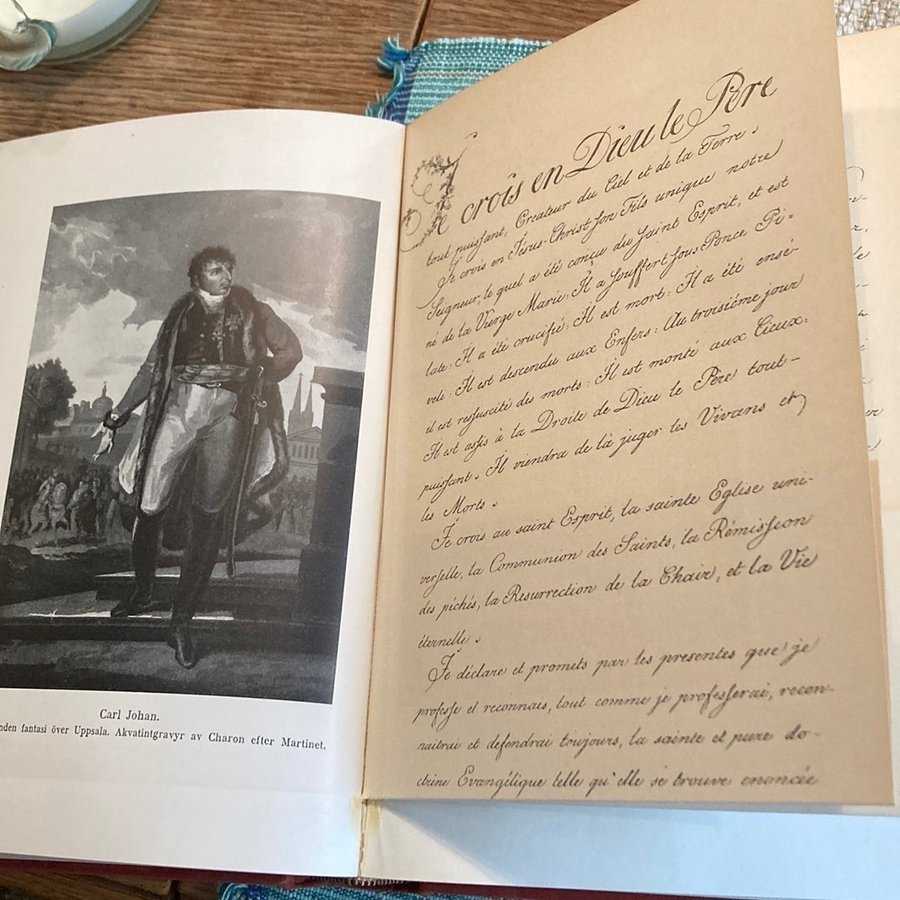 Carl Johan.
nden fantasi över Uppsala. Akvatintgravyr av Charon efter Martinet.
Je crois en Dieu le Père
tout puiſsant, Createur du Ciel et de la Terre.
Je crois en Jésus-Christ ſon Fils unique notre
Seigneur, le quel a été conçu du Saint Esprit, et est
né de la Vierge Marie: Il a ſouffert ſous Ponce Pi-
late: Il a été crucifié: Il est mort: Il a été ensé-
veli: Il est descendu aux Enfers: Au troisième jour
il est reſsuscité des morts: Il est monté aux Cieux:
Il est aſsis à la Droite de Dieu le Père tout-
puiſsant. Il viendra de là juger les Vivans et
les Morts.
Je crois au saint Esprit, la sainte Eglise uni-
verſelle, la Communion des Saints, la Rémiſsion
des péchés, la Resurrection de la Chair, et la Vie
éternelle.
Je déclare et promets par les presentes que je
profeſse et reconnais, tout comme je profeſserai, recon-
naitrai et defendrai toujours, la sainte et pure do-
ctrine Evangélique telle qu'elle se trouve enoncée